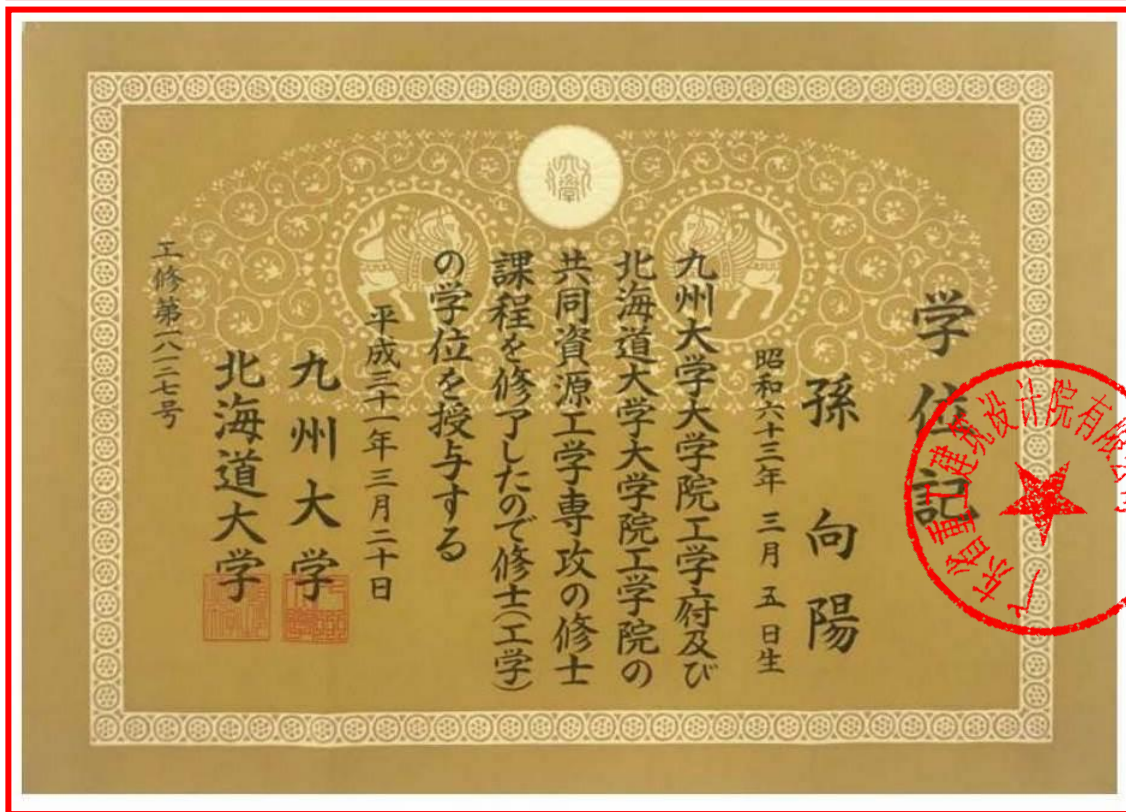 学位記
孫 向陽
昭和六十三年 三月 五日生
九州大学大学院工学府及び
北海道大学大学院工学院の
共同資源工学専攻の修士
課程を修了したので修士(工学)
の学位を授与する
平成三十一年三月二十日
九州大学
北海道大学
工修第一八一二七号
广东省重工建筑设计院有限公司